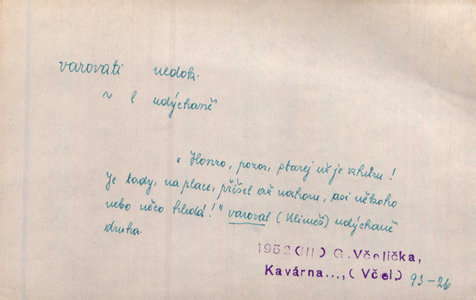 varovati nedok.
~ l udýchaně
"Honzo, pozor, starej už je vzhůru!
Je tady, na place, přišel až nahoru, asi někoho
nebo něco hledá!" varoval (Klimeš) udýchaně
druha.
1952(II) G.Včelička,
Kavárna...,(Včel) 93-26